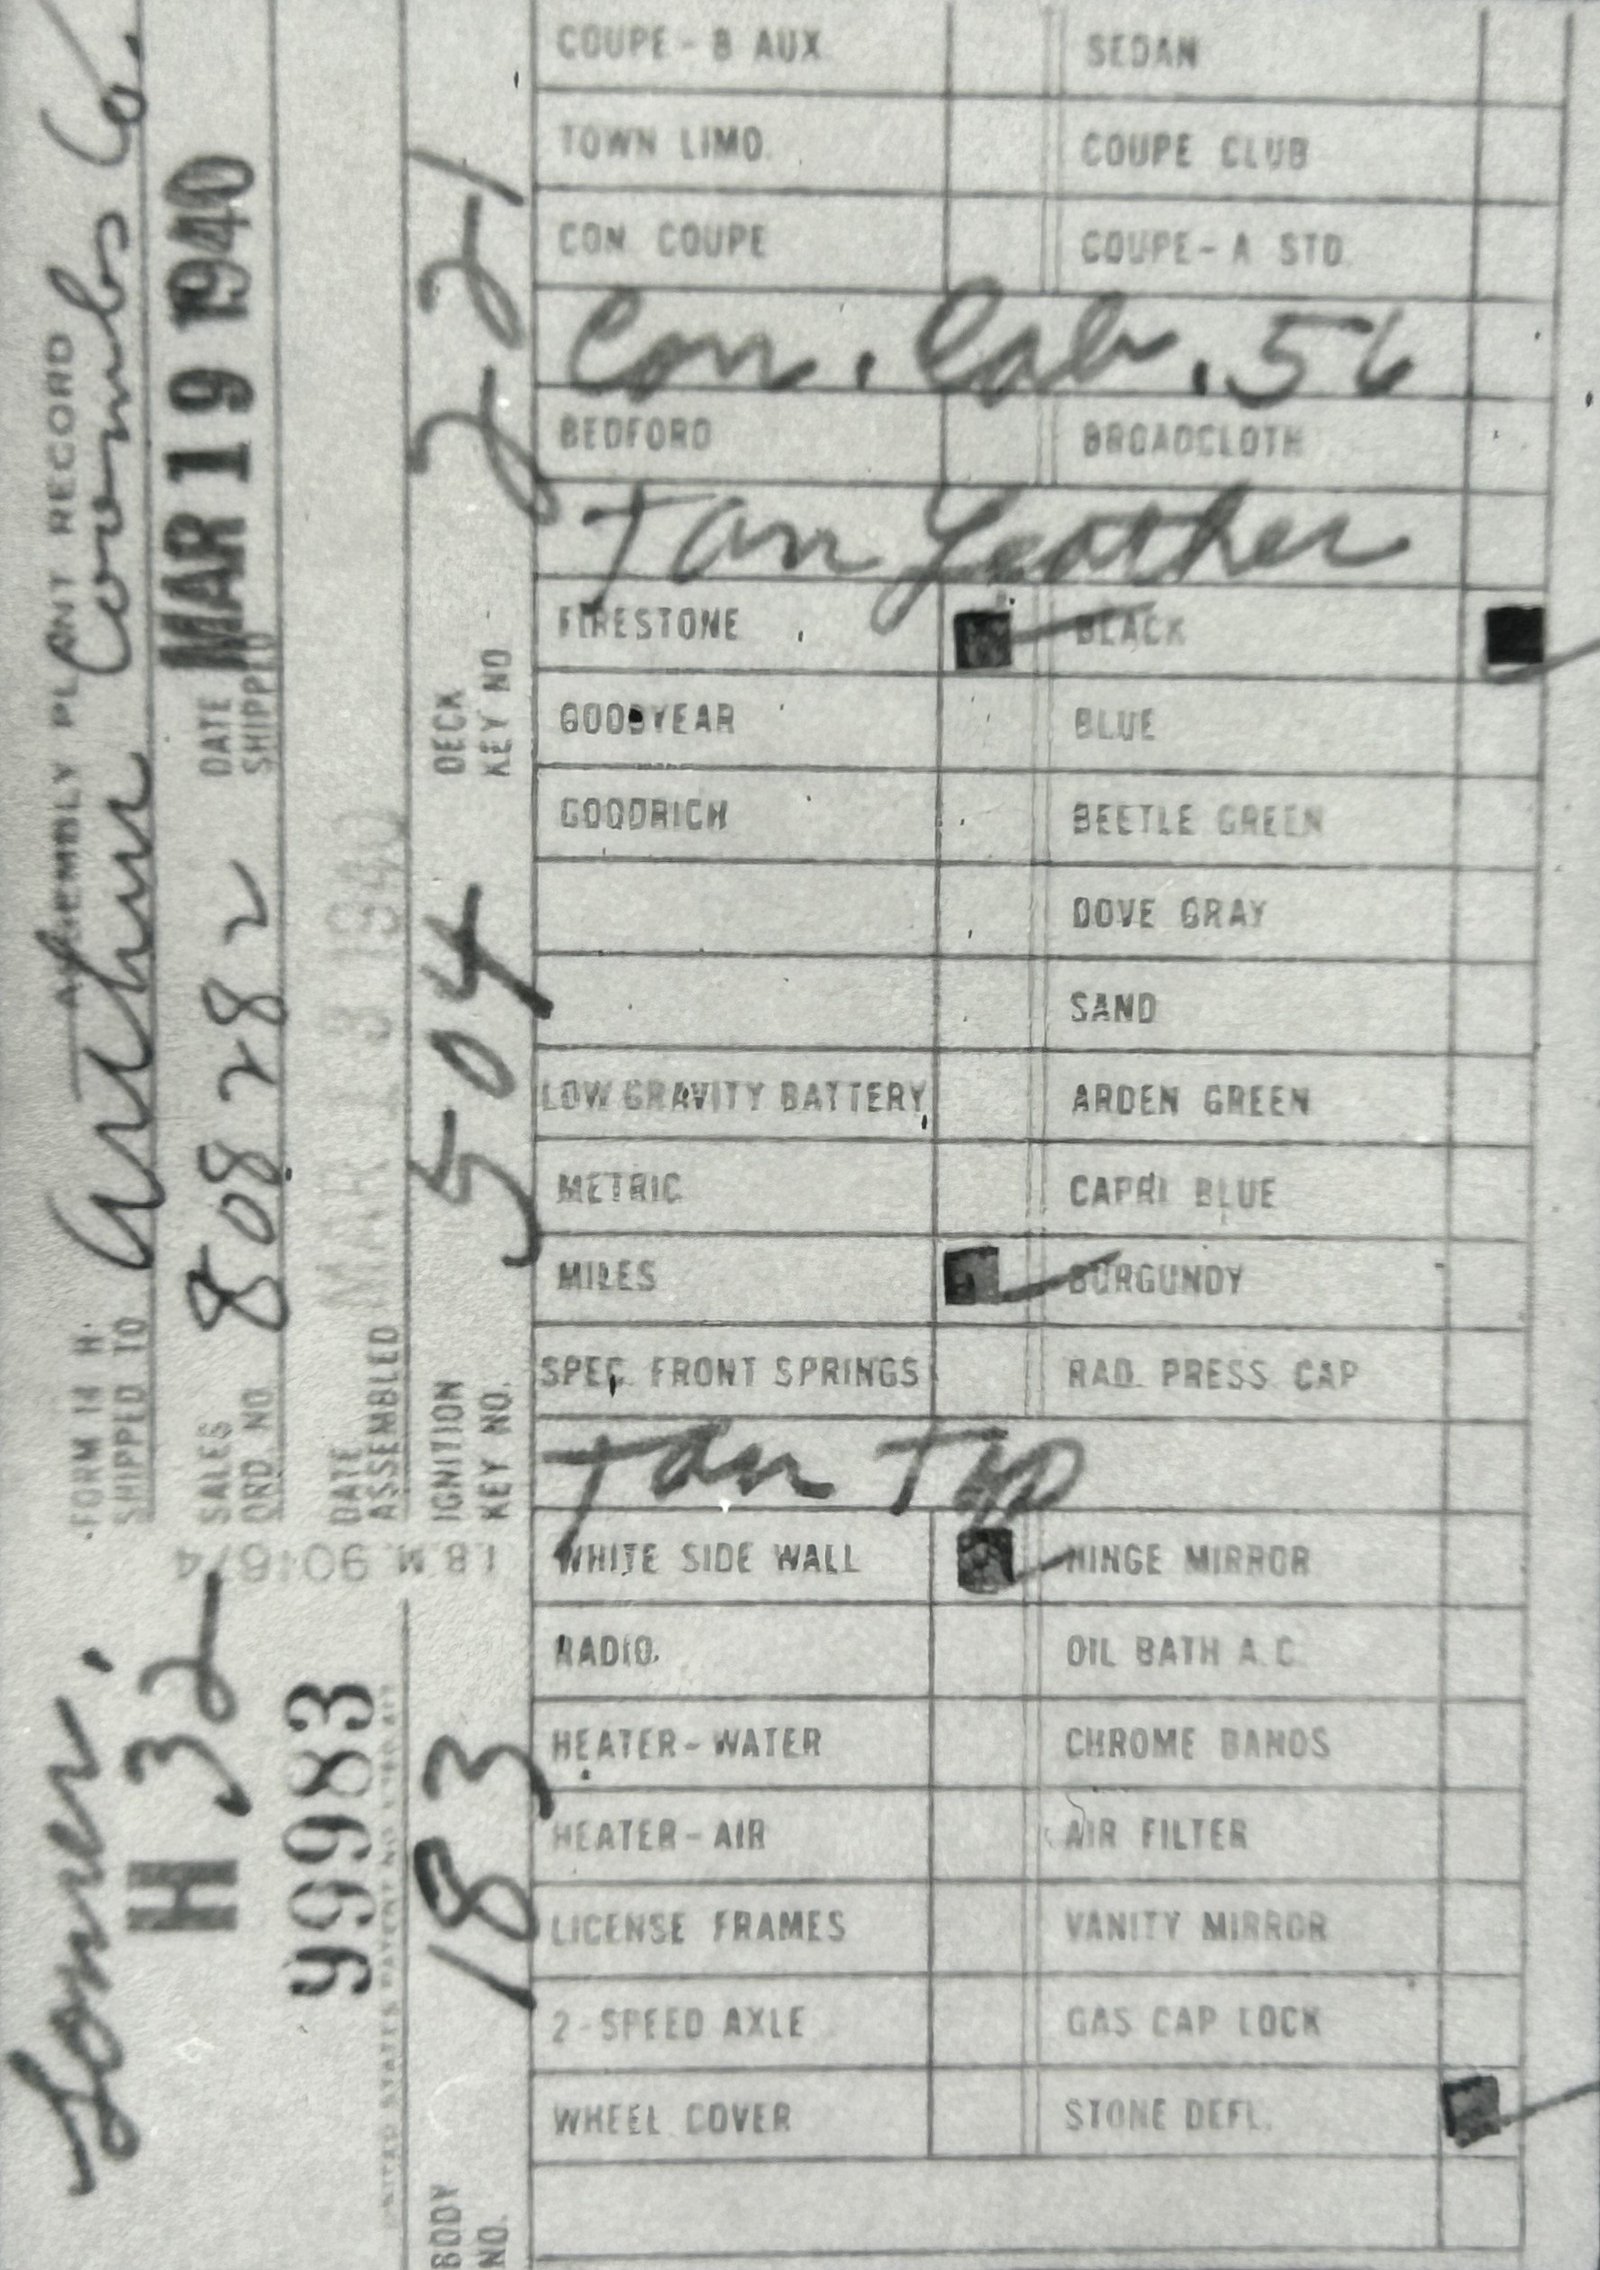 FORM 14 H. ASSEMBLY PLANT RECORD
SHIPPED TO Arthur Coombs Co.
SALES ORD. NO. 808282 DATE SHIPPED MAR 19 1940
DATE ASSEMBLED MAR 13 1940
IGNITION KEY NO. 504 DECK KEY NO 2-21
I.B.M. 901674
H 32
99983
BODY NO. 183
COUPE - B AUX SEDAN
TOWN LIMO. COUPE CLUB
CON. COUPE COUPE - A STD.
Con. Cab. 56
BEDFORD BROADCLOTH
Tan Leather
FIRESTONE BLACK
GOODYEAR BLUE
GOODRICH BEETLE GREEN
DOVE GRAY
SAND
LOW GRAVITY BATTERY ARDEN GREEN
METRIC CAPRI BLUE
MILES BURGUNDY
SPEC. FRONT SPRINGS RAD. PRESS. CAP
Tan Top
WHITE SIDE WALL HINGE MIRROR
RADIO OIL BATH A.C.
HEATER - WATER CHROME BANDS
HEATER - AIR AIR FILTER
LICENSE FRAMES VANITY MIRROR
2-SPEED AXLE GAS CAP LOCK
WHEEL COVER STONE DEFL.